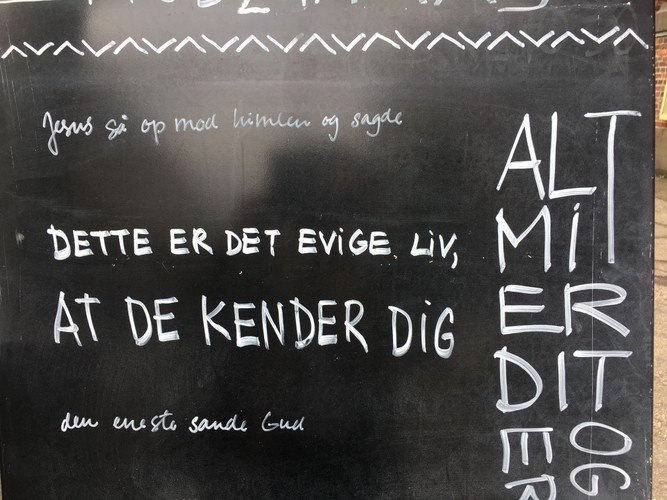 Jesus så op mod himlen og sagde
DETTE ER DET EVIGE LIV,
AT DE KENDER DIG
den eneste sande Gud
ALT
MiT
ER
DIT
OG
DE